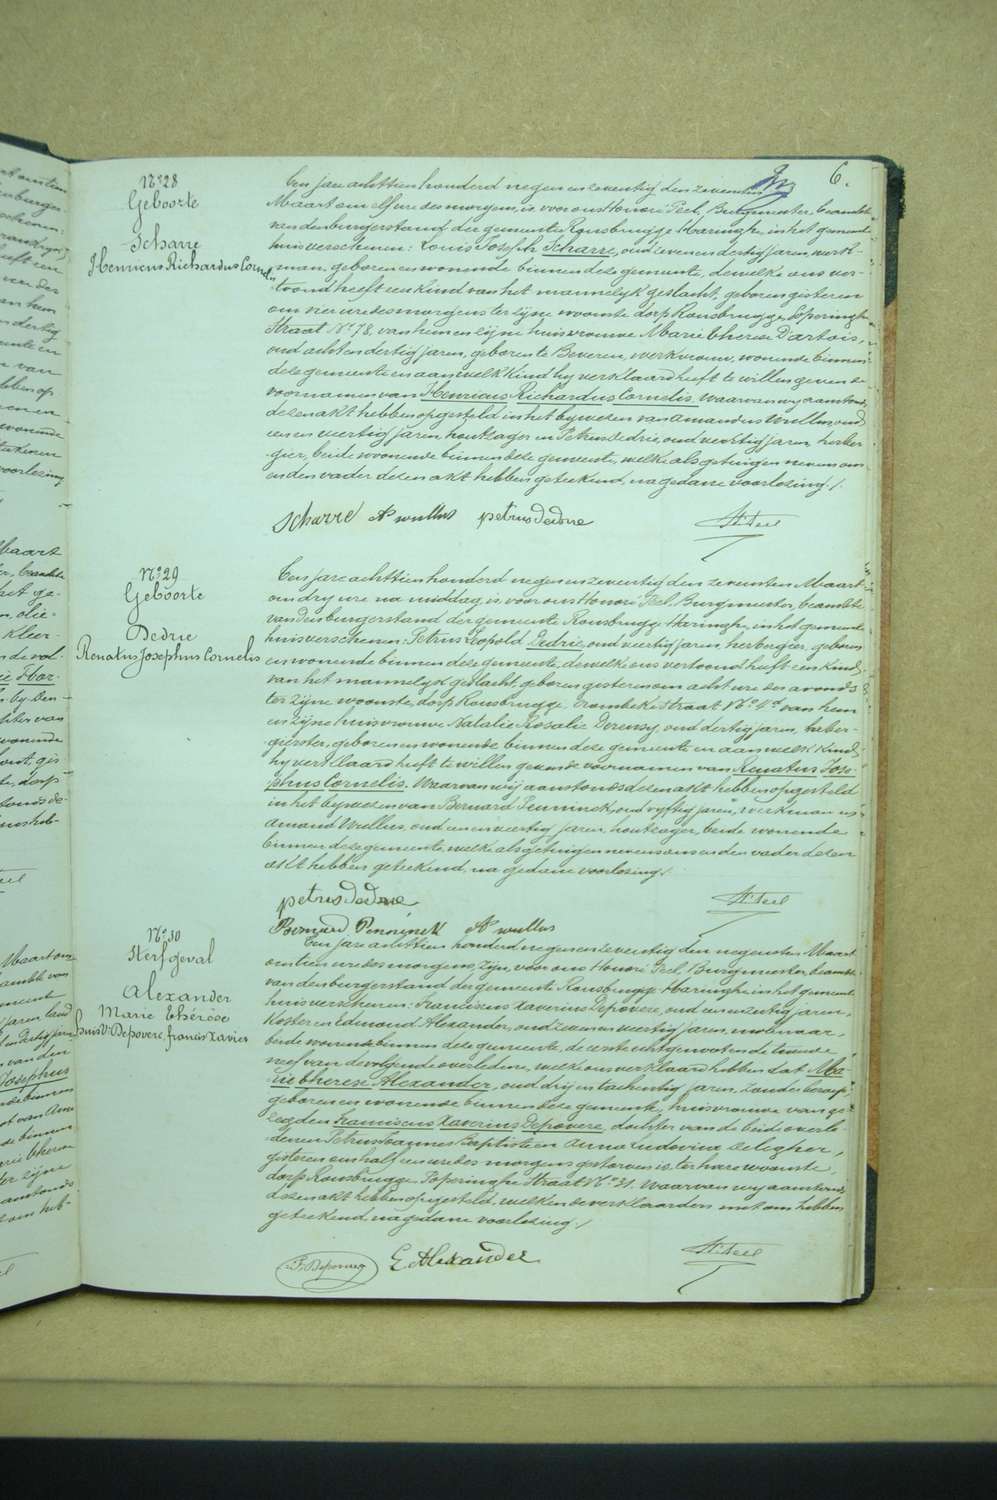 6.
N° 28
Geboorte
Scharre
Henricus Richardus Cornelis
Een jare achttien honderd negen en zeventig den zevensten
Maart om elf ure des morgens, is voor ons Honoré Peel, Burgmeester, beambte
van den burgerstand der gemeente Rousbrugge Haringhe, in het gemeente
huis verschenen: Louis Joseph Scharre, oud zeven en dertig jaren, werk-
man, geboren en wonende binnen deze gemeente, dewelke ons ver-
toond heeft een kind van het mannelyk geslacht, geboren gisteren
om vier ure des morgens ter zyne woonste dorp Rousbrugge, Poperinghe
Straat N° 78. van hem en zyne huisvrouwe Marie Therese Dartois,
oud acht en dertig jaren, geboren te Beveren, werkvrouw, wonende binnen
deze gemeente en aan welk kind hy verklaard heeft te willen geven de
voornamen van Henricus Richardus Cornelis. Waarvan wy aanstonds
dezen akt hebben opgesteld in het bywezen van Amandus Wullus, oud
een en veertig jaren, houtzager en Petrus Dedrie, oud veertig jaren, herber-
gier, beide woonende binnen deze gemeente, welke als getuigen nevens ons
en den vader dezen akt hebben geteekend, na gedane voorlezing /.
Scharre A wullus petrus dedrie H. Peel
N° 29
Geboorte
Dedrie
Renatus Josephus Cornelis
Een jare achttien honderd negen en zeventig den zevensten Maart
om dry ure na middag, is voor ons Honoré Peel, Burgmeester, beambte
van den burgerstand der gemeente Rousbrugge Haringhe, in het gemeente
huis verschenen: Petrus Leopold Dedrie, oud veertig jaren, herbergier, geboren
en wonende binnen deze gemeente, dewelke ons vertoond heeft een kind
van het mannelyk geslacht, geboren gisteren om acht ure des avonds
ter zyne woonste, dorp Rousbrugge, Crombeke straat N° 4 van hem
en zyne huisvrouwe Natalie Rosalie Derensy, oud dertig jaren, herber-
gierster, geboren en wonende binnen deze gemeente en aan welk kind
hy verklaard heeft te willen geven de voornamen van Renatus Jose-
phus Cornelis. Waarvan wij aanstonds dezen akt hebben opgesteld
in het bywezen van Bernard Penninck, oud vyftig jaren, werkman en
Amand Wullus, oud een en veertig jaren, houtzager, beide wonende
binnen deze gemeente, welke als getuigen nevens ons en den vader dezen
akt hebben geteekend, na gedane voorlezing /.
petrus dedrie H. Peel
Bernard Penninck A wullus
N° 30
Sterfgeval
Alexander
Marie Thérèse
huisv. Depovere, francis Xavier
Een jare achttien honderd negen en zeventig den negensten Maart
om tien ure des morgens, zyn, voor ons Honoré Peel, Burgmeester, beambte
van den burgerstand der gemeente Rousbrugge-Haringhe, in het gemeente
huis verschenen: Franciscus Xaverius Depovere, oud een en zestig jaren,
koster en Edmond Alexander, oud zeven en veertig jaren, molenaar,
beide wonende binnen deze gemeente, de eerste echtgenoot en de tweede
neef van de volgende overledene, welke ons verklaard hebben dat Ma-
rie Therese Alexander, oud dry en tachentig jaren, zonder beroep,
geboren en wonende binnen deze gemeente, huisvrouwe van ge-
zegden Franciscus Xaverius Depovere, dochter van de beide overle-
denen Petrus Joannes Baptiste en Anna Ludovica Delegher,
gisteren om half een ure des morgens gestorven is ter hare woonste,
dorp Rousbrugge, Poperinghe Straat N° 31. Waarvan wy aanstonds
dezen akt hebben opgesteld, welken de verklaarders met ons hebben
geteekend, na gedane voorlezing /.
F. Depovere E Alexander H. Peel